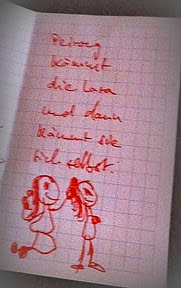 kämmt
die Lara
und dann
kämmt sie
sich selbst.